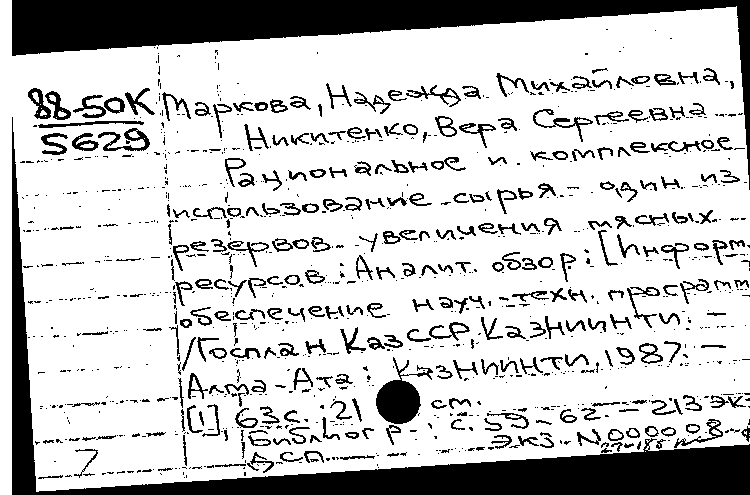 88-50К
5629
Маркова, Надежда Михайловна,
Никитенко, Вера Сергеевна
Рациональное и комплексное
использование сырья - один из
резервов увеличения мясных
ресурсов : Аналит. обзор : [Информ.
обеспечение науч.-техн. программ
/Госплан КазССР, КазНИИНТИ. -
Алма-Ата : КазНИИНТИ, 1987. -
[1], 63 с. ; 21 см.
Библиогр. : с. 59-62. - 213 экз
Экз. N000008
ДСП.
7